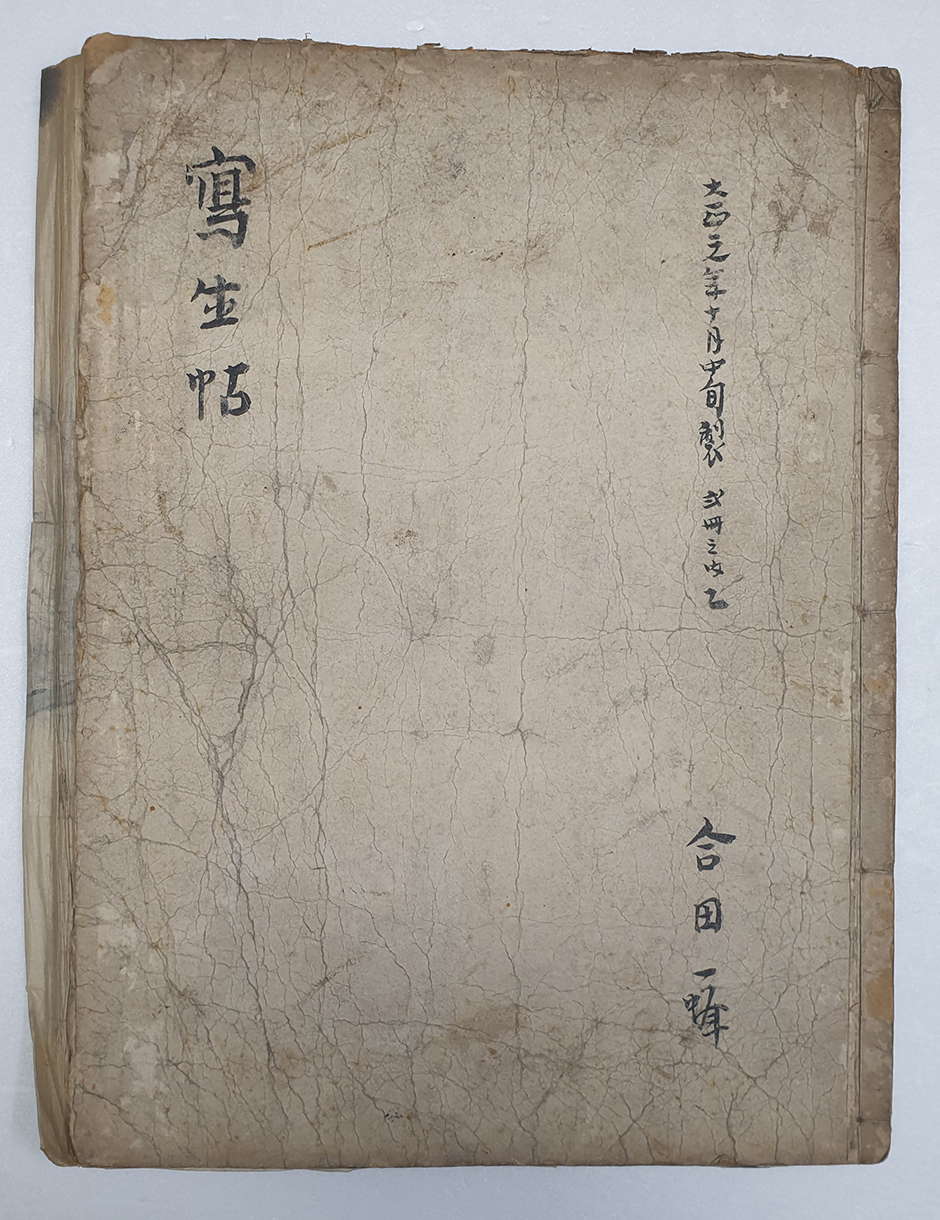 大正元年十月中旬製 弐冊之内 乙
合田一峰
寫生帖